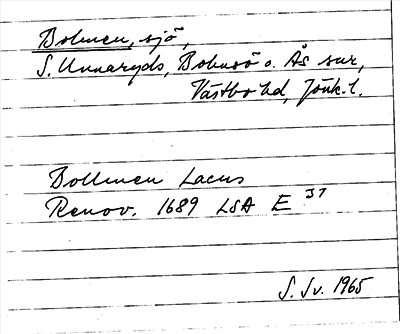 Bolmen, sjö,
S. Unnaryds, Bolmsö o. Ås snr,
Västbo hd, Jönk. l.
Bollmen Lacus
Renov. 1689 LSA E 37
S. Sv. 1965